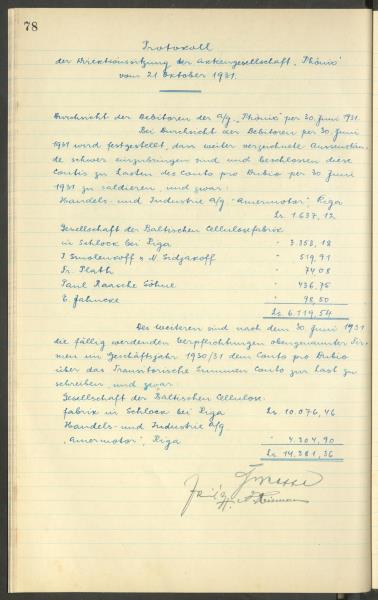 78
Protokoll
der Direktionssitzung der Aktiengesellschaft „Phönix"
vom 21 Oktober 1931.
Durchsicht der Debitoren der A/g. „Phönix" per 30. Juni 1931.
Bei Durchsicht der Debitoren per 30. Juni
1931 wird festgestellt, dass weiter verzeichnete Aussenstän-
de schwer einzubringen sind und beschlossen diese
Contis zu Lasten des Conto pro Dubio per 30 Juni
1931 zu saldieren, und zwar:
Handels- und Industrie A/g. „Amermotor" Riga
Ls 1.637,12
Gesellschaft der Baltischen Cellulosefabrik
in Schlock bei Riga " 3.353,18
" 519,91
Fr. Plath " 74,08
Paul Raasche Söhne " 436,75
E. Jahncke " 98,50
Ls 6.119,54
Des Weiteren sind nach dem 30 Juni 1931
die fällig werdenden Verpflichtungen obengenannter Fir-
men im Geschäftsjahr 1930/31 dem Conto pro Dubio
über das Transitorische Summen Conto zur Last zu
schreiben, und zwar:
Gesellschaft der Baltischen Cellulose-
fabrik in Schlock bei Riga Ls 10.076,46
Handels- und Industrie A/g.
„Amermotor", Riga " 4.304,90
Ls 14.381,36